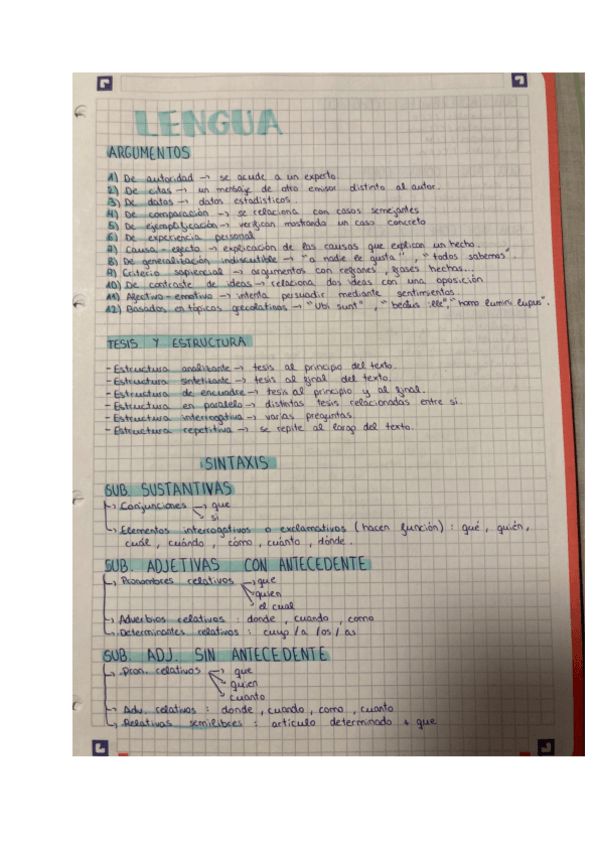 LENGUA
ARGUMENTOS
1) De autoridad → se acude a un experto.
2) De citas → un mensaje de otro emisor distinto al autor.
3) De datos → datos estadísticos.
4) De comparación → se relaciona con casos semejantes
5) De ejemplificación → verifican mostrando un caso concreto
6) De experiencia personal
7) Causa - efecto → explicación de las causas que explican un hecho.
8) De generalización indiscutible → "a nadie le gusta", "todos sabemos".
9) Criterio sapiencial → argumentos con refranes, frases hechas...
10) De contraste de ideas → relaciona dos ideas con una oposición
11) Afectivo - emotivo → intenta persuadir mediante sentimientos.
12) Basados en tópicos grecolatinos → "Ubi sunt", "beatus ille", "homo lupus".
TESIS Y ESTRUCTURA
- Estructura analizante → tesis al principio del texto.
- Estructura sintetizante → tesis al final del texto.
- Estructura de encuadre → tesis al principio y al final.
- Estructura en paralelo → distintas tesis relacionadas entre sí.
- Estructura interrogativa → varias preguntas.
- Estructura repetitiva → se repite al largo del texto.
SINTAXIS
SUB. SUSTANTIVAS
→ Conjunciones → que
si
→ Elementos interrogativos o exclamativos (hacen función): qué, quién,
cuál, cuándo, cómo, cuánto, dónde.
SUB. ADJETIVAS CON ANTECEDENTE
→ Pronombres relativos → que
quien
el cual
→ Adverbios relativos: donde, cuando, como
→ Determinantes relativos: cuyo/a/os/as
SUB. ADJ. SIN ANTECEDENTE
→ Pron. relativos → que
quien
cuanto
→ Adv. relativos: donde, cuando, como, cuanto
→ Relativas semilibres: artículo determinado + que